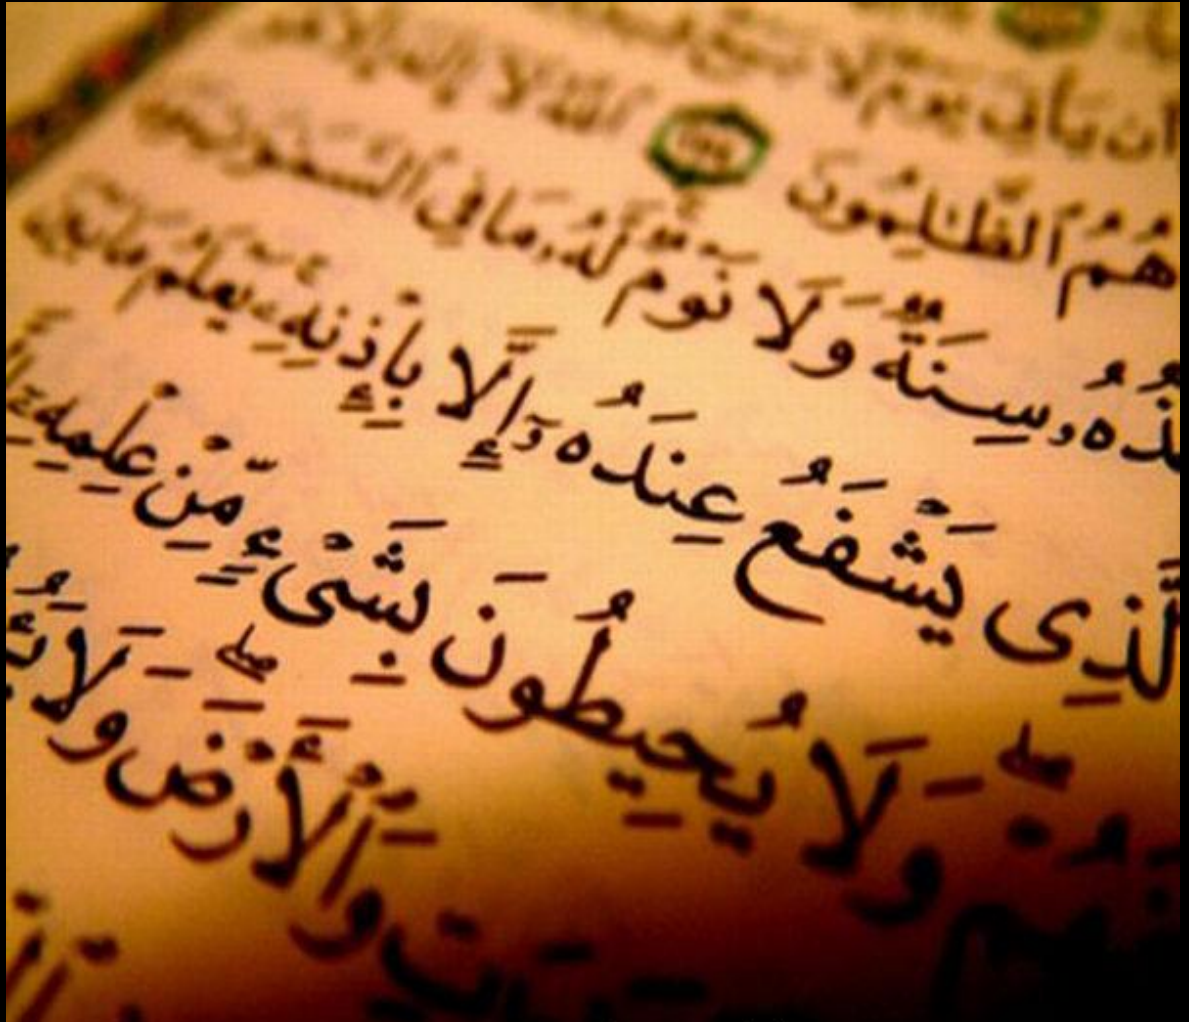 أَن يَأْتِىَ يَوْمٌ لَّا بَيْعٌ
هُمُ ٱلظَّٰلِمُونَ ٢٥٤ ٱللَّهُ لَآ إِلَٰهَ إِلَّا هُوَ
ـذُهُۥ سِنَةٌ وَلَا نَوْمٌ لَّهُۥ مَا فِى ٱلسَّمَٰوَٰتِ
ـلَّذِى يَشْفَعُ عِندَهُۥٓ إِلَّا بِإِذْنِهِۦ يَعْلَمُ مَا بَيْنَ
ـهُمْ ۖ وَلَا يُحِيطُونَ بِشَىْءٍ مِّنْ عِلْمِهِۦٓ
ـٰتِ وَٱلْأَرْضَ ۖ وَلَا